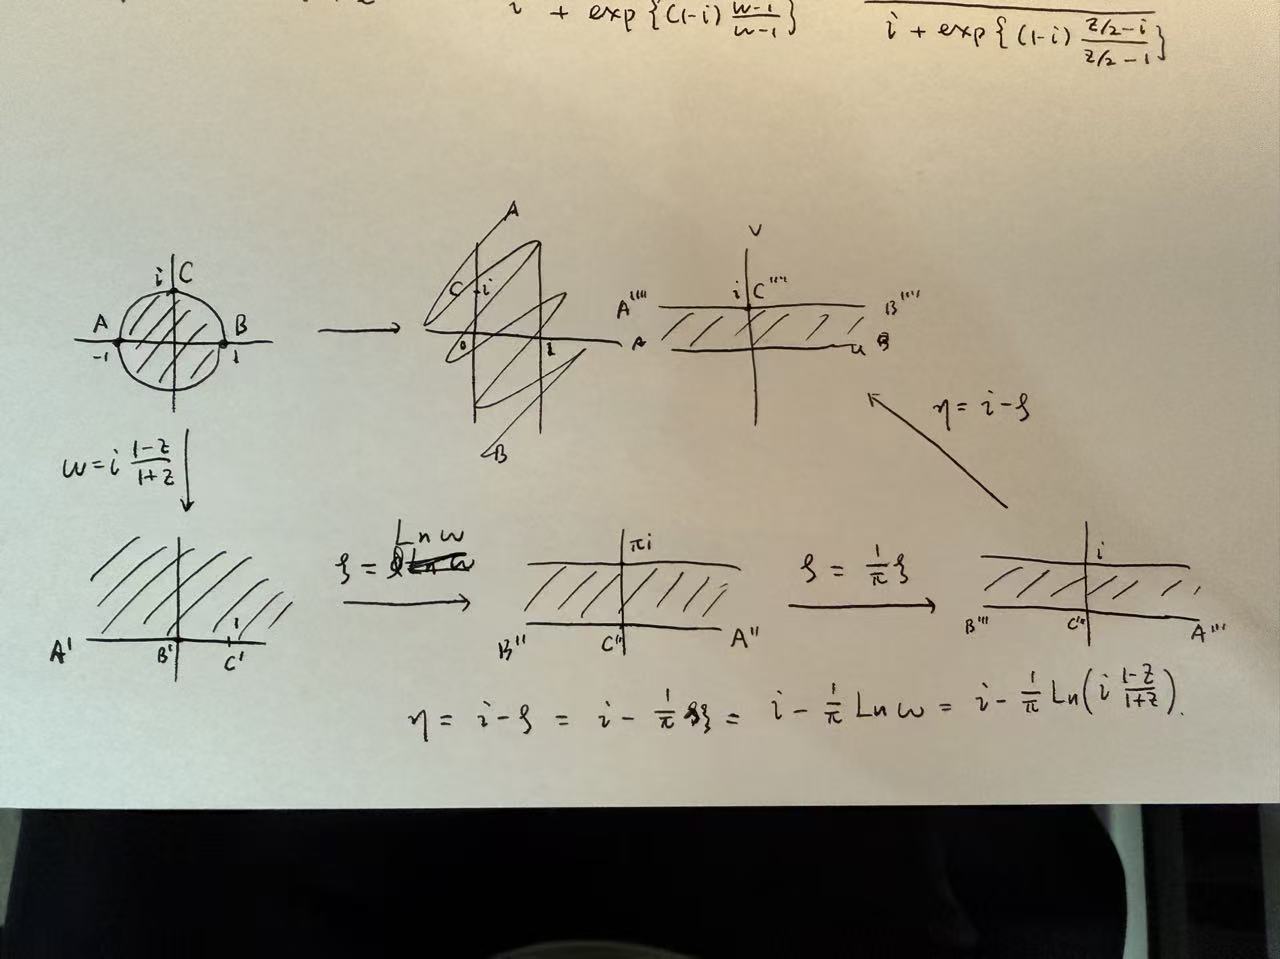 i + exp{(1-i) \frac{w-1}{w-1}}
i + exp{(1-i) \frac{z/2-i}{z/2-1}}
i C
A B
-1 1
A
C i
0 1 A
B
v
A'''' i C'''' B''''
u B
η = i-ς
w = i \frac{1-z}{1+z}
A' B' 1 C'
Ln w
ξ =
πi
B'' C'' A''
ς = \frac{1}{π} ξ
i
B''' C''' A'''
η = i-ς = i - \frac{1}{π} ξ = i - \frac{1}{π} Ln w = i - \frac{1}{π} Ln(i \frac{1-z}{1+z}).